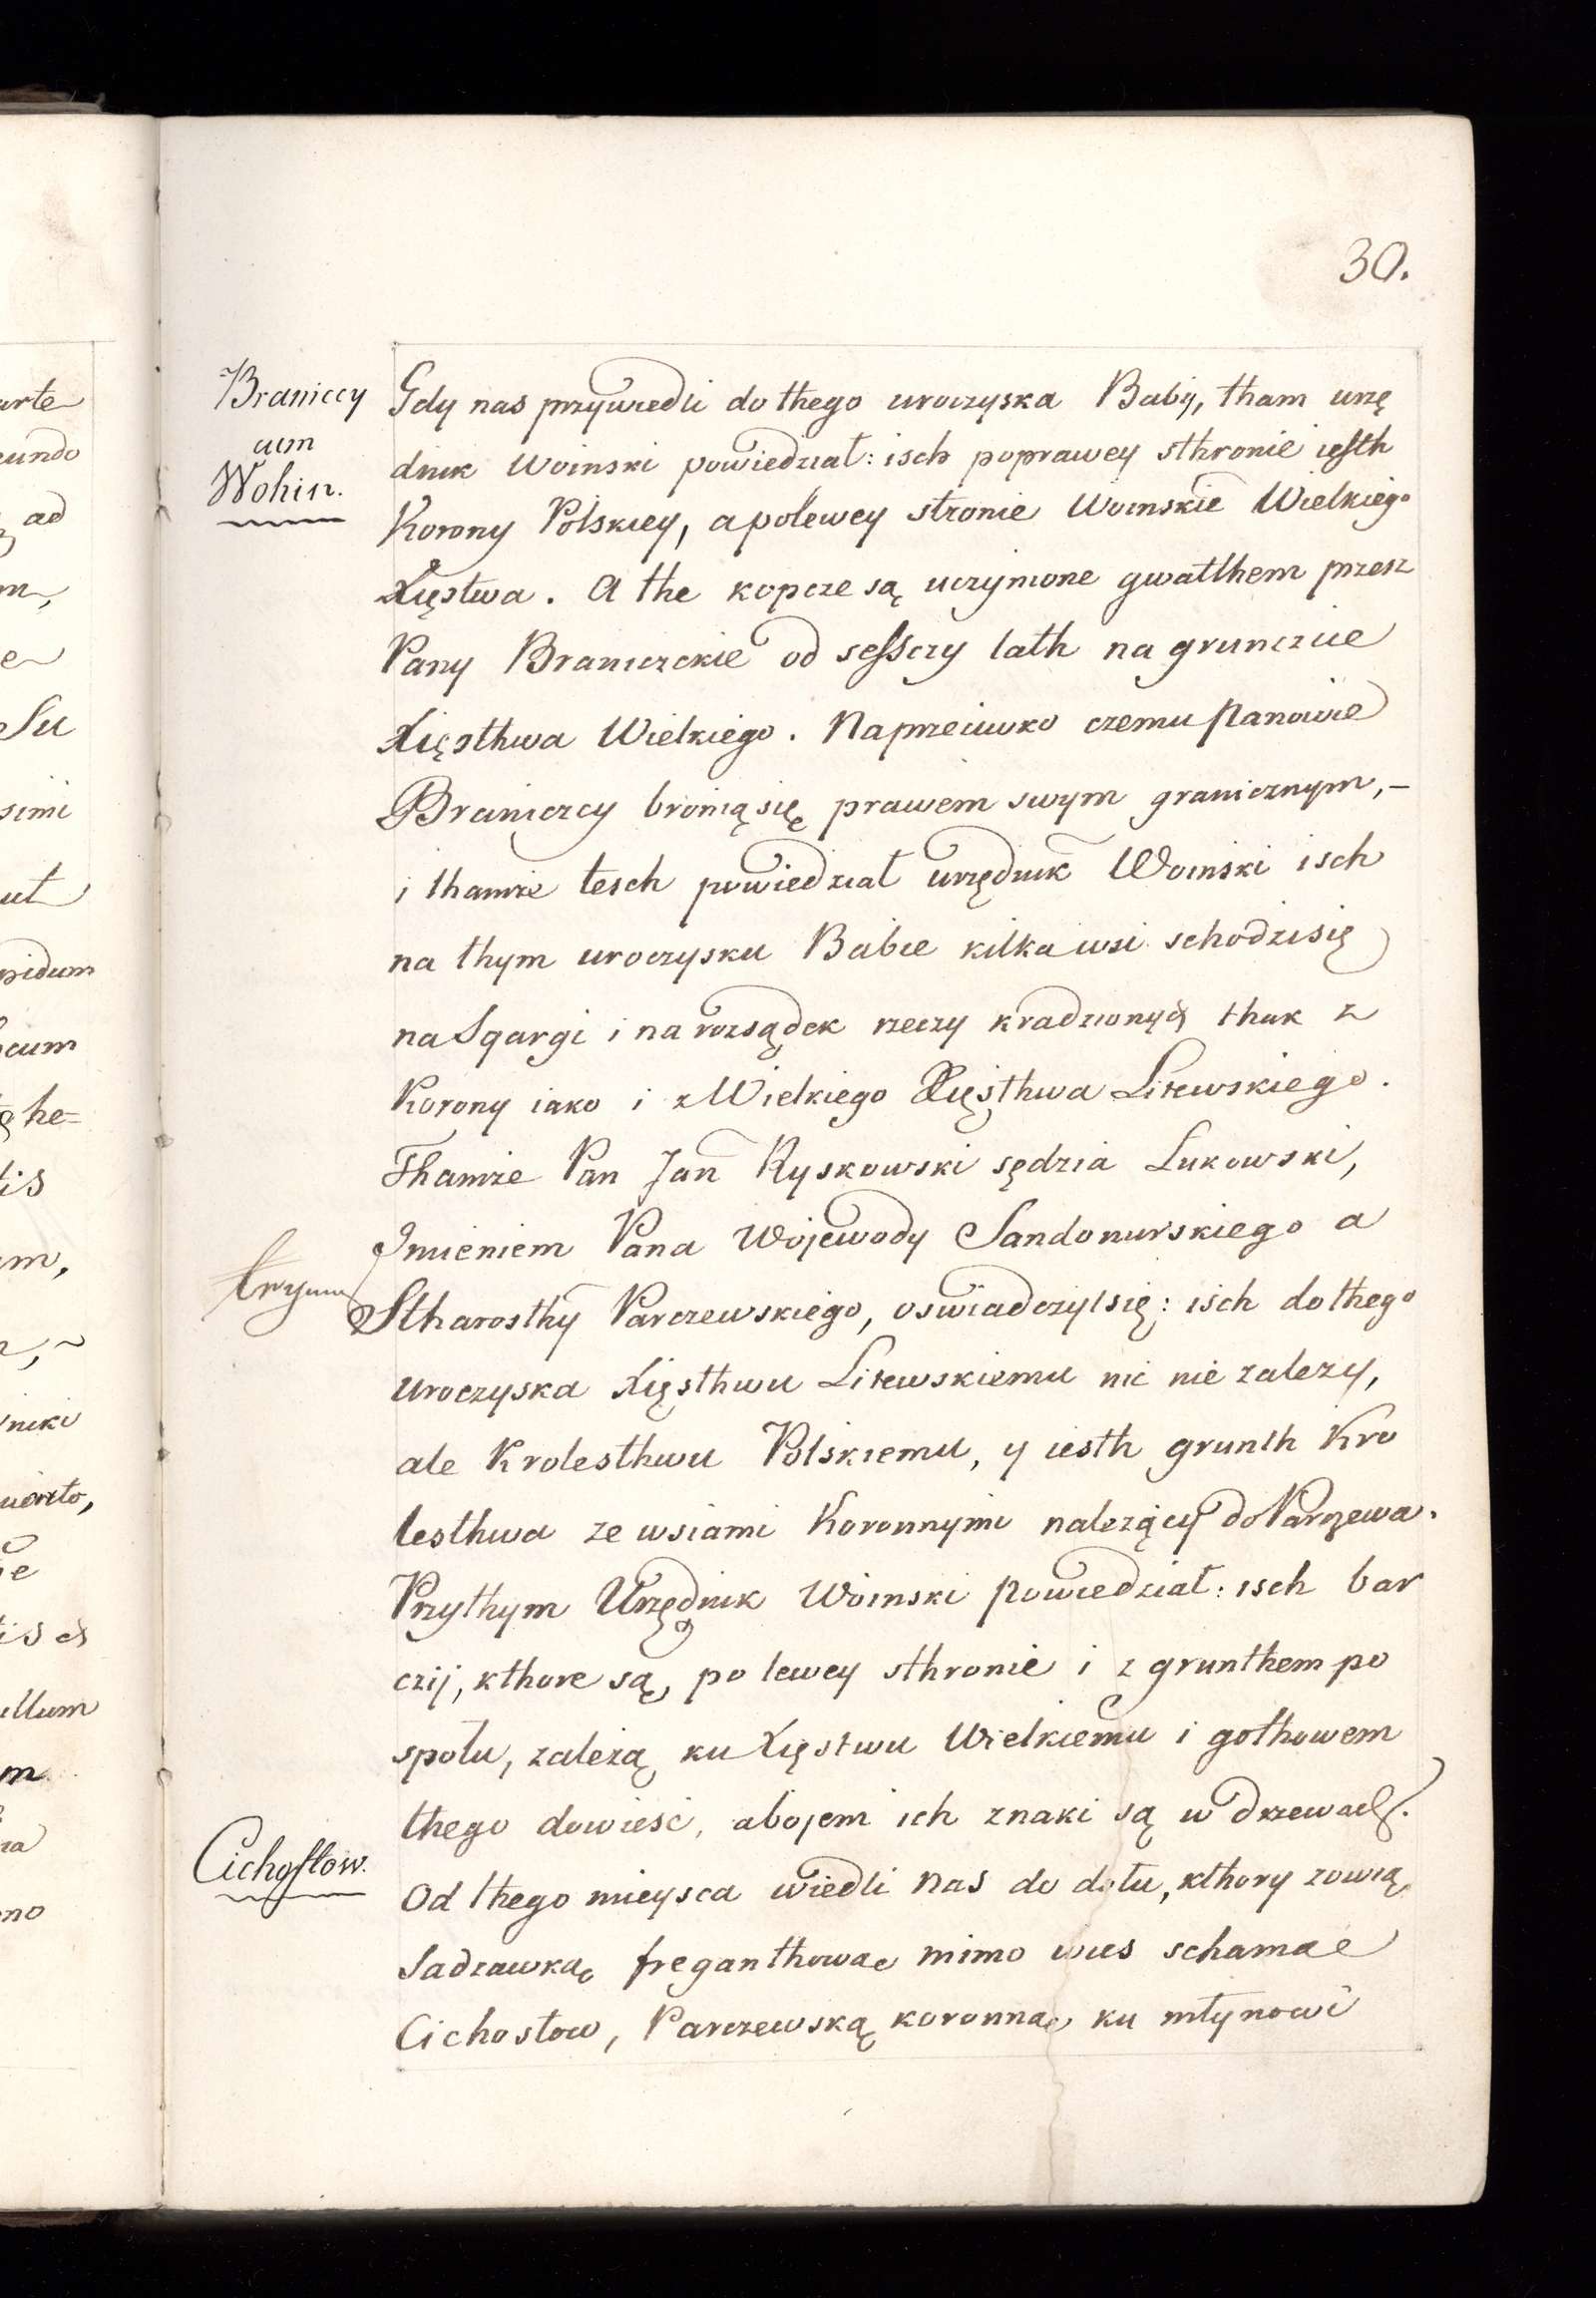 30.
Braniccy
cum
Wohin.
Gdy nas przywiedli do thego uroczyska Babÿ, tham urzę
dnik Woinski powiedział: isch poprawey sthronie iesth
Korony Polskiey, a polewey stronie Woinskie Wielkiego
Xięstwa. A the kopcze są uczynione gwałthem przesz
Pany Braniczckie od sessczy lath na grunczie
Xięsthwa Wielkiego. Naprzeciwko czemu Panowie
Braniczcy bronią się prawem swym granicznym, –
i thamże tesch powiedział urzędnik Woinski isch
na thym uroczysku Babie kilka wsi schodzi się
na Sqargi i na rozsądek rzeczy kradzionych thak z
Korony iako i z Wielkiego Xięsthwa Litewskiego.
Thamże Pan Jan Ryskowski sędzia Lukowski,
Imieniem Pana Wojewody Sandomirskiego a
Stharosthy Parczewskiego, oswiadczył się: isch do thego
uroczyska Xięsthwu Litewskiemu nic nie zalezy,
ale Krolesthwu Polskiemu, y iesth grunth Kro
lesthwa ze wsiami Koronnymi nalezący do Parczewa.
Przythym Urzędnik Woinski powiedział: isch bar
czij, kthore są po lewey sthronie i z grunthem po
społu, zależą ku Xięstwu Wielkiemu i gothowem
thego dowieść, abojem ich znaki są w drzewach.
Cichostow.
Od thego mieysca wiedli nas do dołu, kthory zowią
Sadzawką freganthową mimo wies schamą
Cichostow, Parczewską koronną ku młynowi